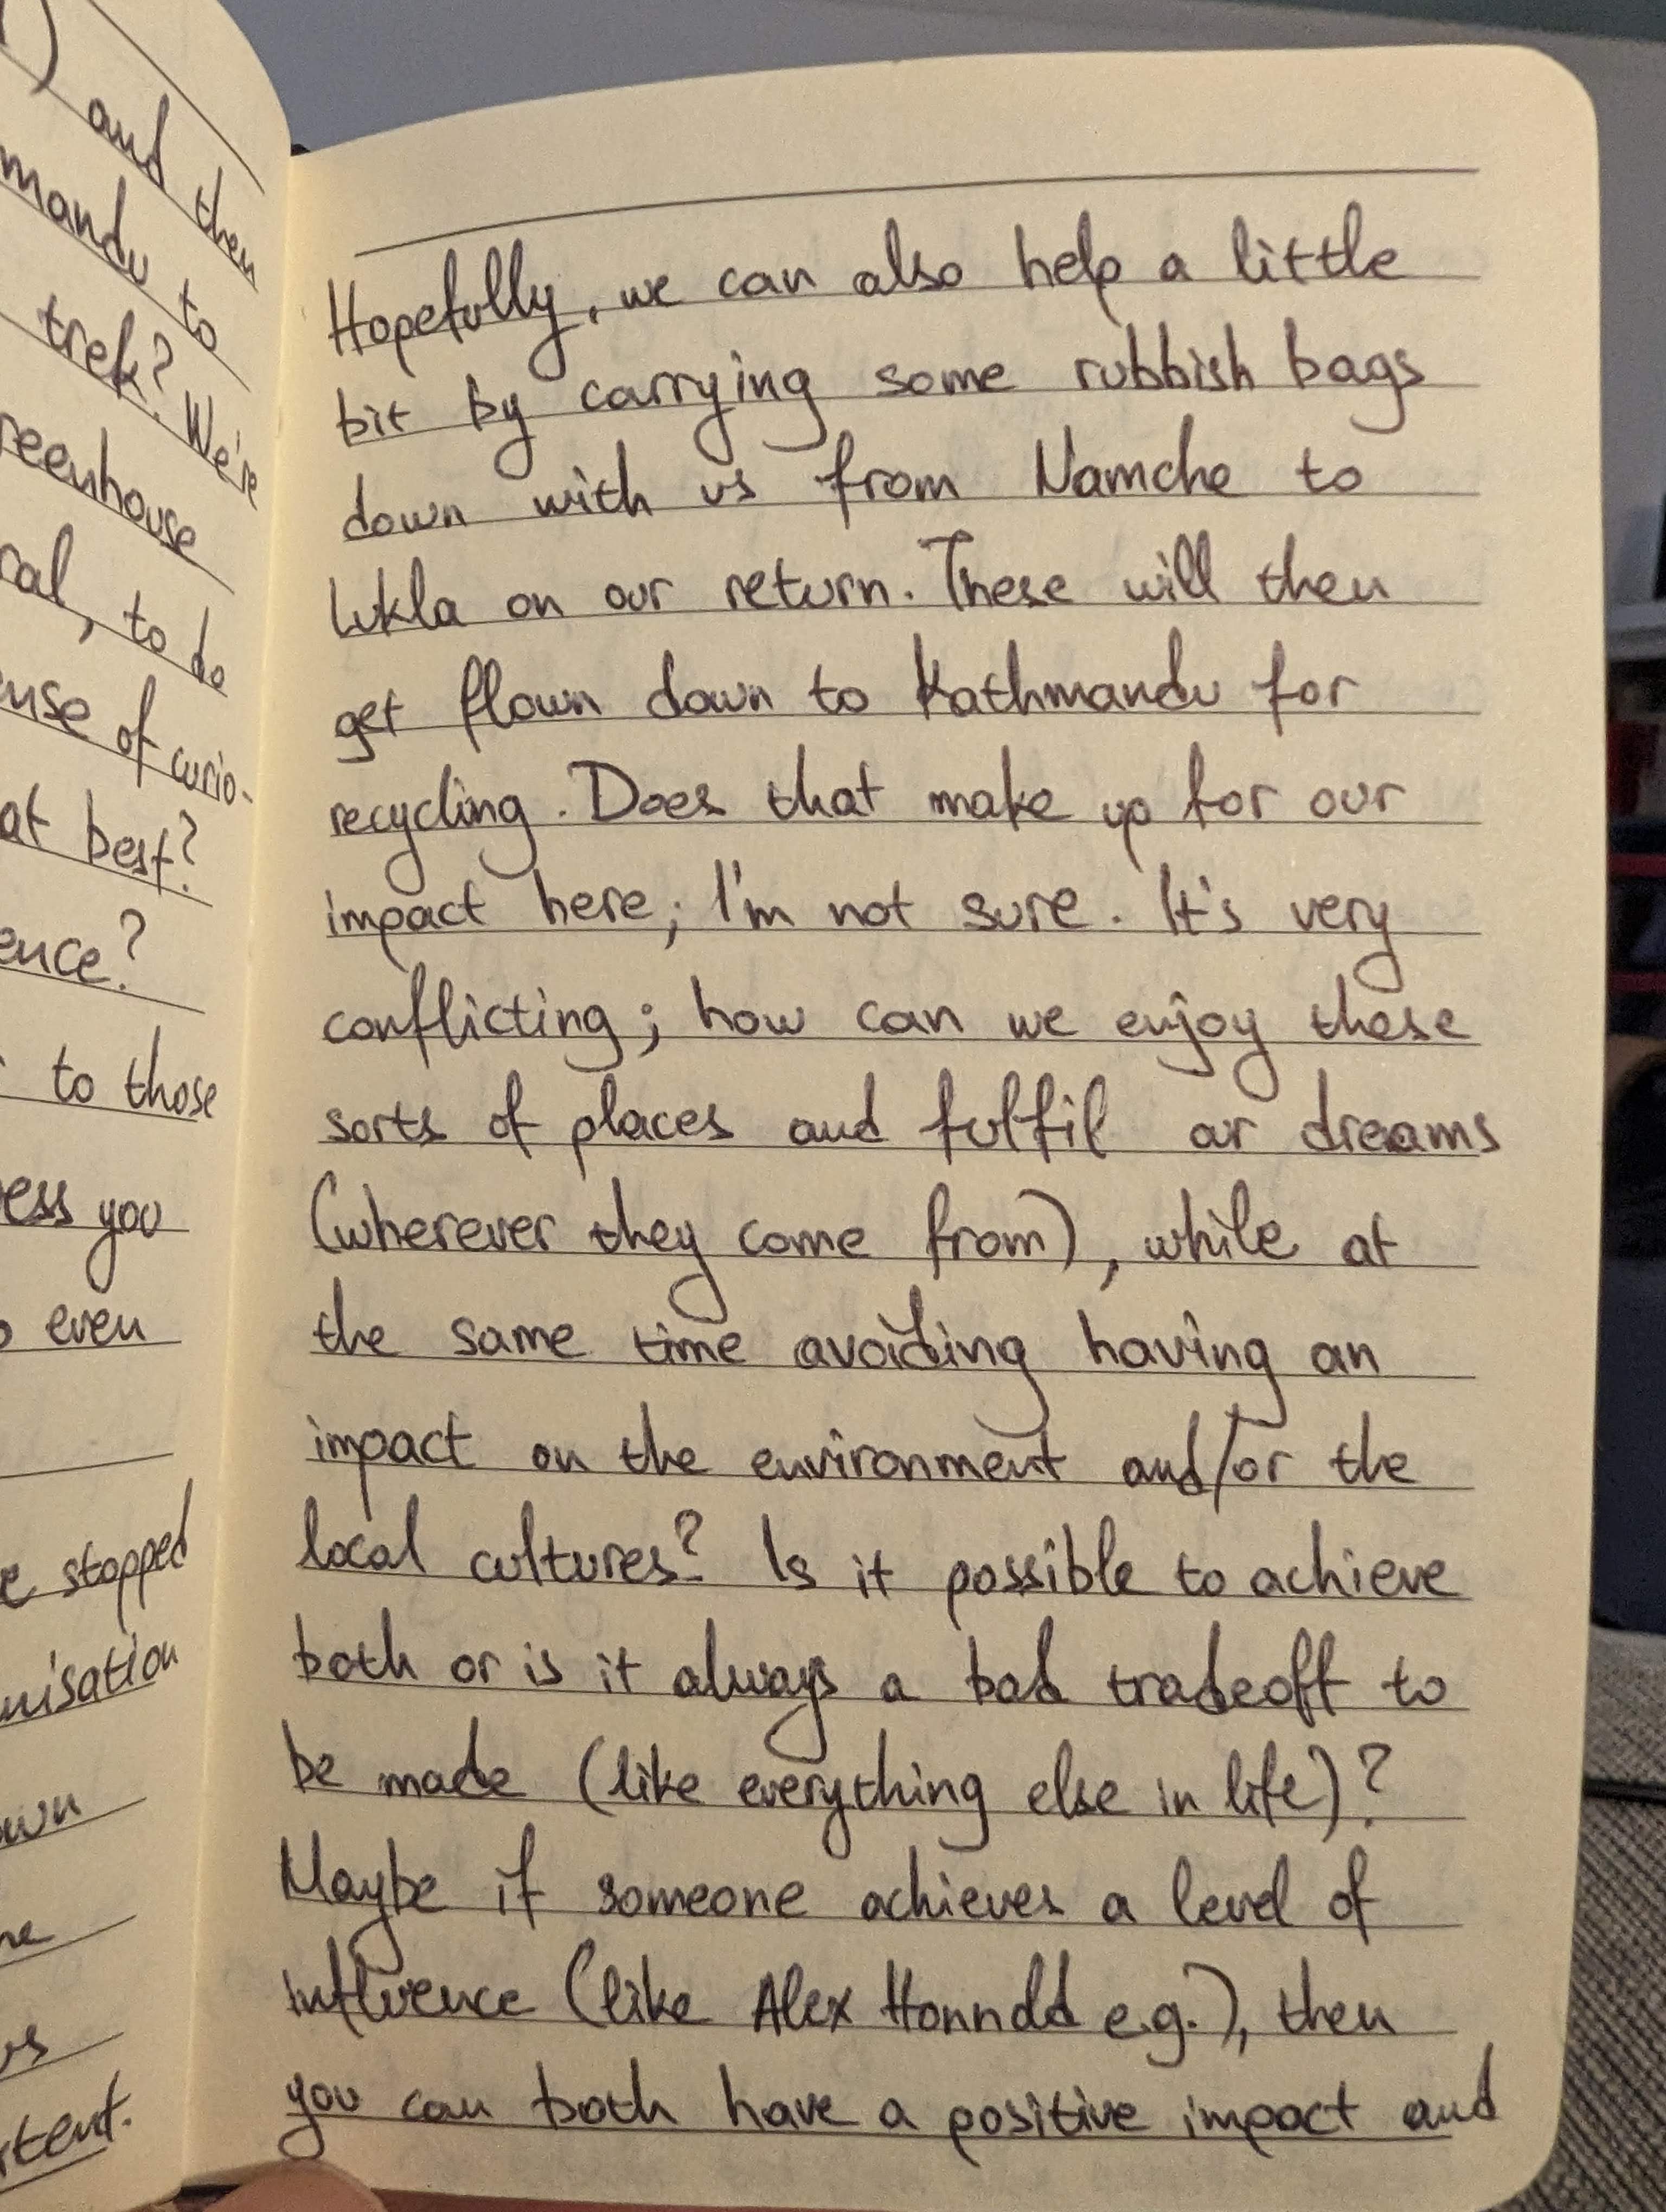 ) and then
mandu to
trek? We're
reenhouse
ral, to do
ense of curio-
at best?
ence?
to those
ess you
even
e stopped
nisation
own
ne
us
tent.
Hopefully, we can also help a little
bit by carrying some rubbish bags
down with us from Namche to
Lukla on our return. These will then
get flown down to Kathmandu for
recycling. Does that make up for our
impact here; I'm not sure. It's very
conflicting; how can we enjoy these
sorts of places and fulfil our dreams
(wherever they come from), while at
the same time avoiding having an
impact on the environment and/or the
local cultures? Is it possible to achieve
both or is it always a bad tradeoff to
be made (like everything else in life)?
Maybe if someone achieves a level of
influence (like Alex Honnold e.g.), then
you can both have a positive impact and